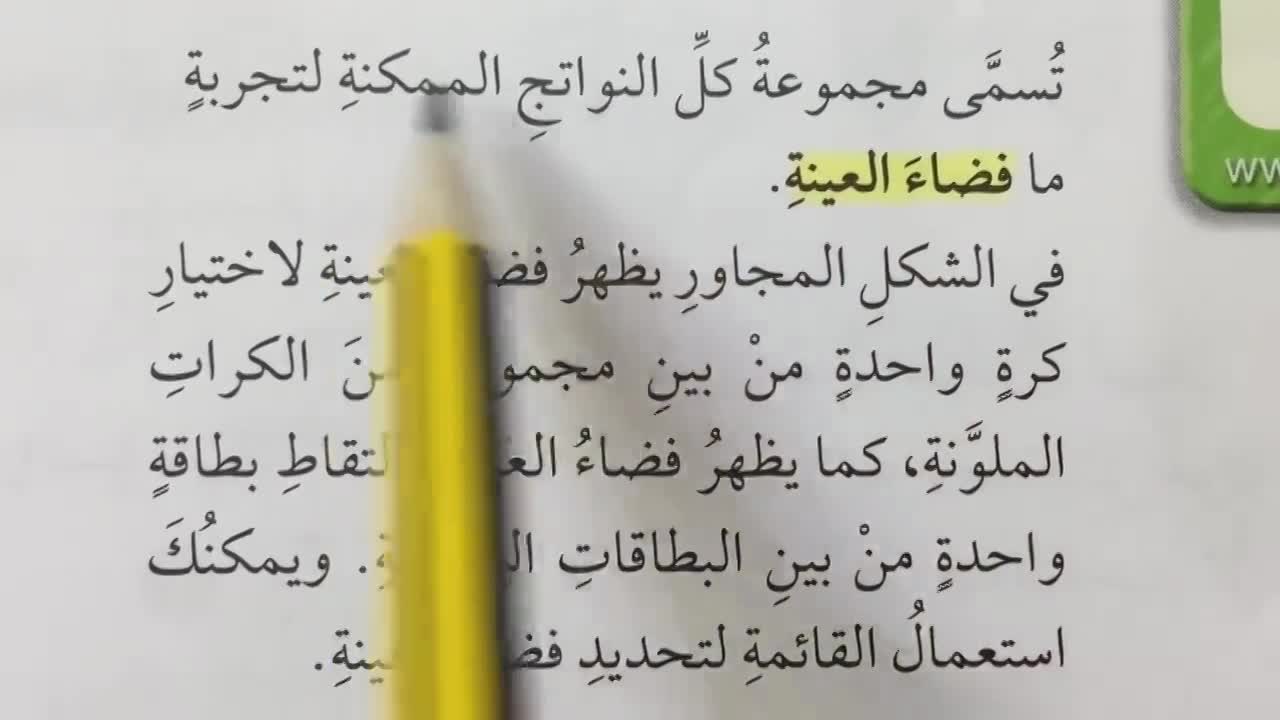 تُسمَّى مجموعةُ كلِّ النواتجِ الممكنةِ لتجربةٍ
ما فضاءَ العينةِ.
في الشكلِ المجاورِ يظهرُ لاختيارِ
كرةٍ واحدةٍ منْ بينِ الكراتِ
الملوَّنةِ، كما يظهرُ فضاءُ بطاقةٍ
واحدةٍ منْ بينِ البطاقاتِ . ويمكنُكَ
استعمالُ القائمةِ لتحديدِ